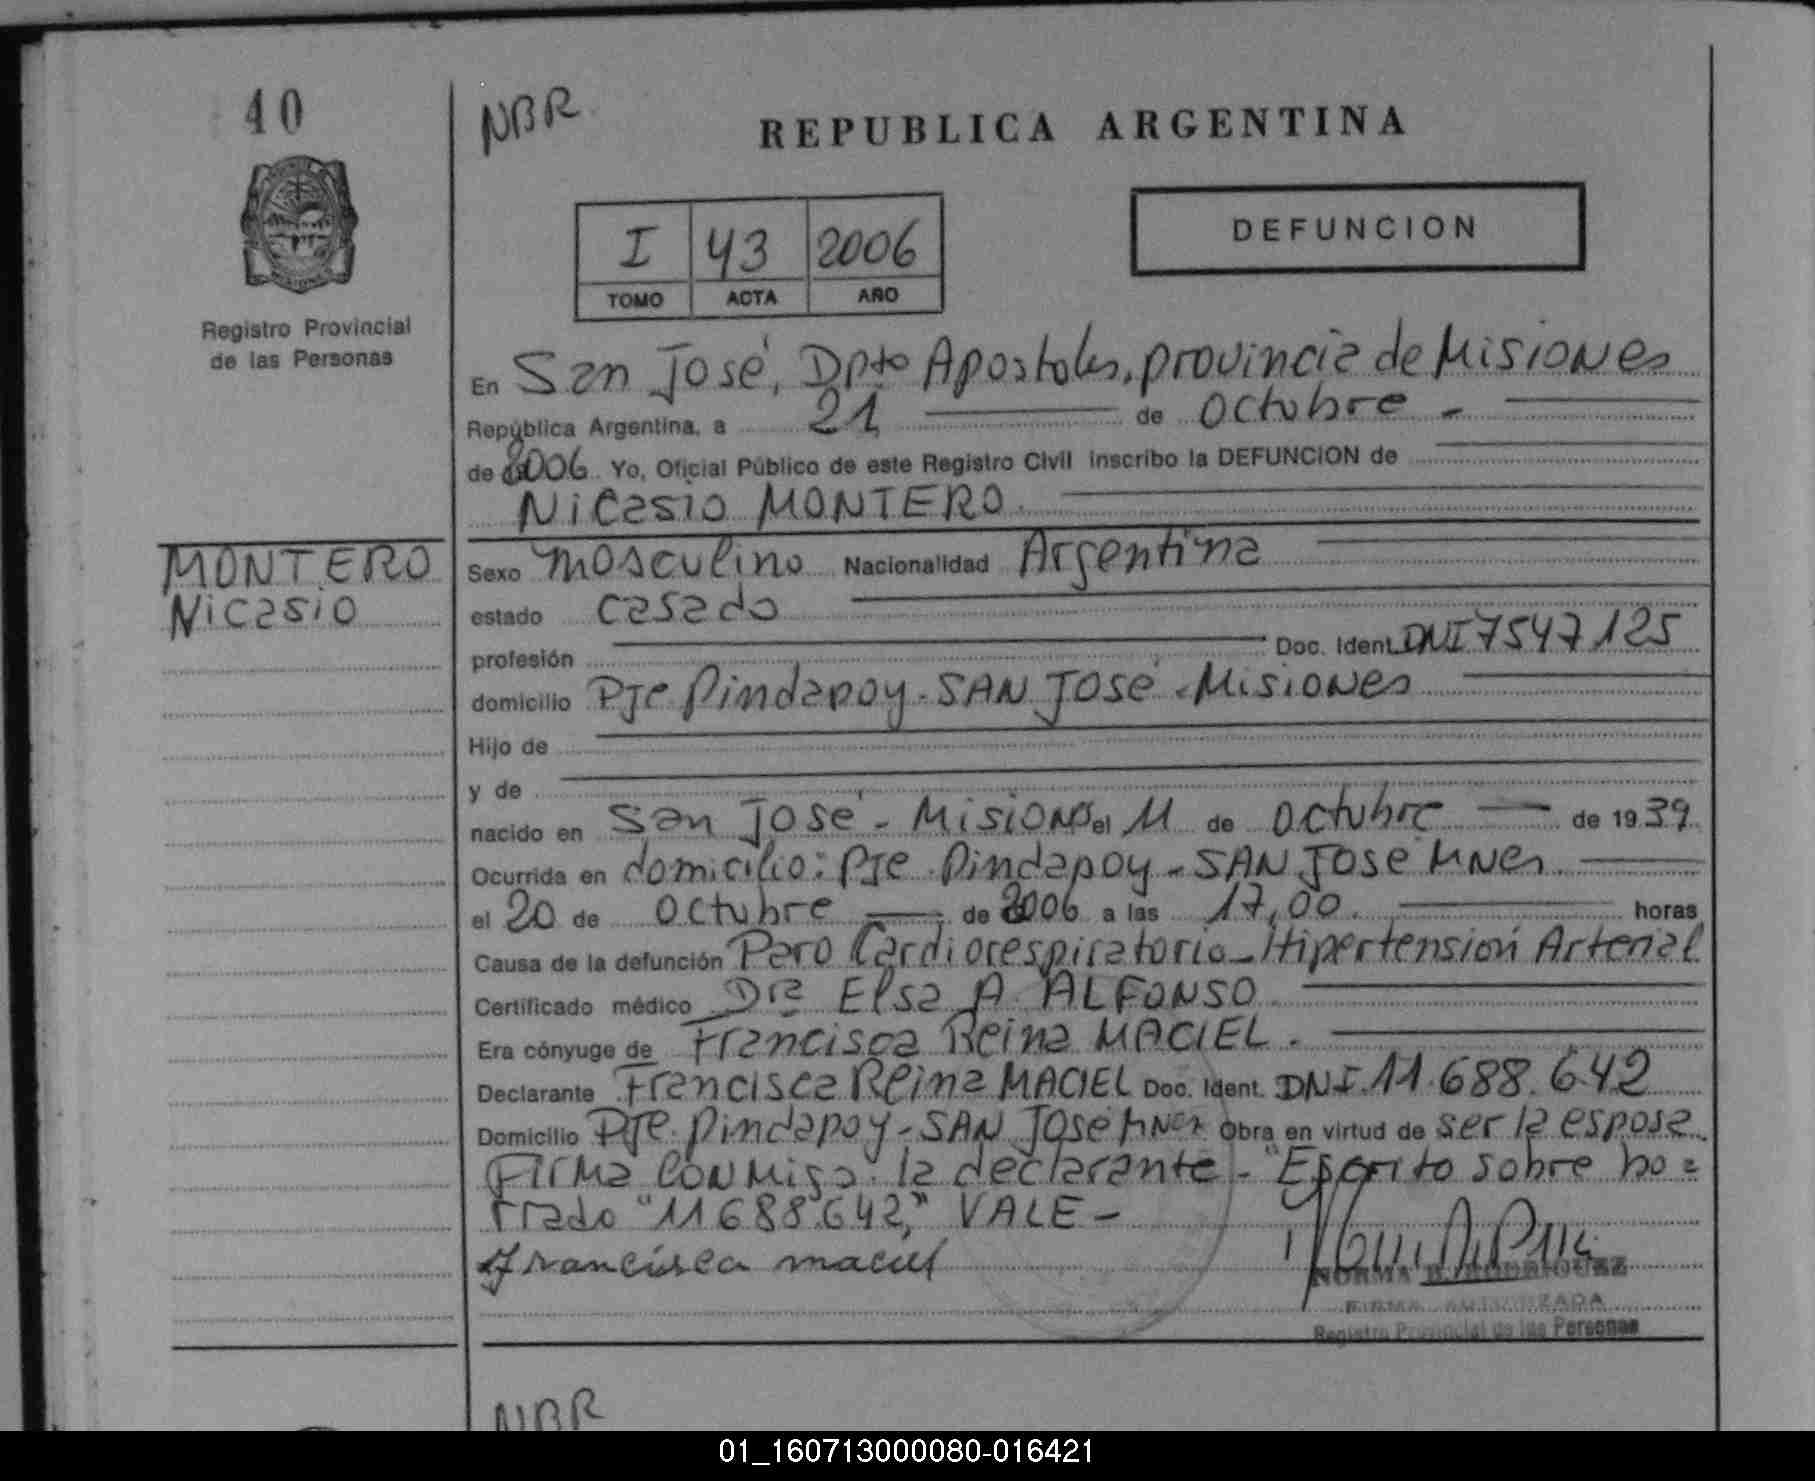 40
NBR
REPUBLICA ARGENTINA
I 43 2006
TOMO ACTA AÑO
DEFUNCION
Registro Provincial
de las Personas
En San José, Dpto Apostoles, provincia de Misiones
República Argentina, a 21 de octubre -
de 2006 Yo, Oficial Público de este Registro Civil inscribo la DEFUNCION de
Nicasio MONTERO.
MONTERO
Nicasio
Sexo masculino Nacionalidad Argentina
estado casado
profesión Doc. Ident. DNI 7547125
domicilio Pje Pindapoy - SAN José - Misiones
Hijo de
y de
nacido en San José - Misiones el 11 de octubre de 1939.
Ocurrida en domicilio: Pje Pindapoy - SAN José Mnes.
el 20 de octubre de 2006 a las 17,00. horas
Causa de la defunción Paro Cardiorespiratorio - Hipertensión Arterial
Certificado médico Dra Elsa A. ALFONSO.
Era cónyuge de Francisca Reina MACIEL.
Declarante Francisca Reina MACIEL Doc. Ident. DNI. 11.688.642
Domicilio Pje. Pindapoy - SAN José Mnes Obra en virtud de ser la esposa.
Firma conmigo la declarante - "Escrito sobre bo=
rrado "11688.642," VALE -
Francisca maciel
NORMA B. RODRIGUEZ
FIRMA AUTORIZADA
Registro Provincial de las Personas
NBR
01_160713000080-016421